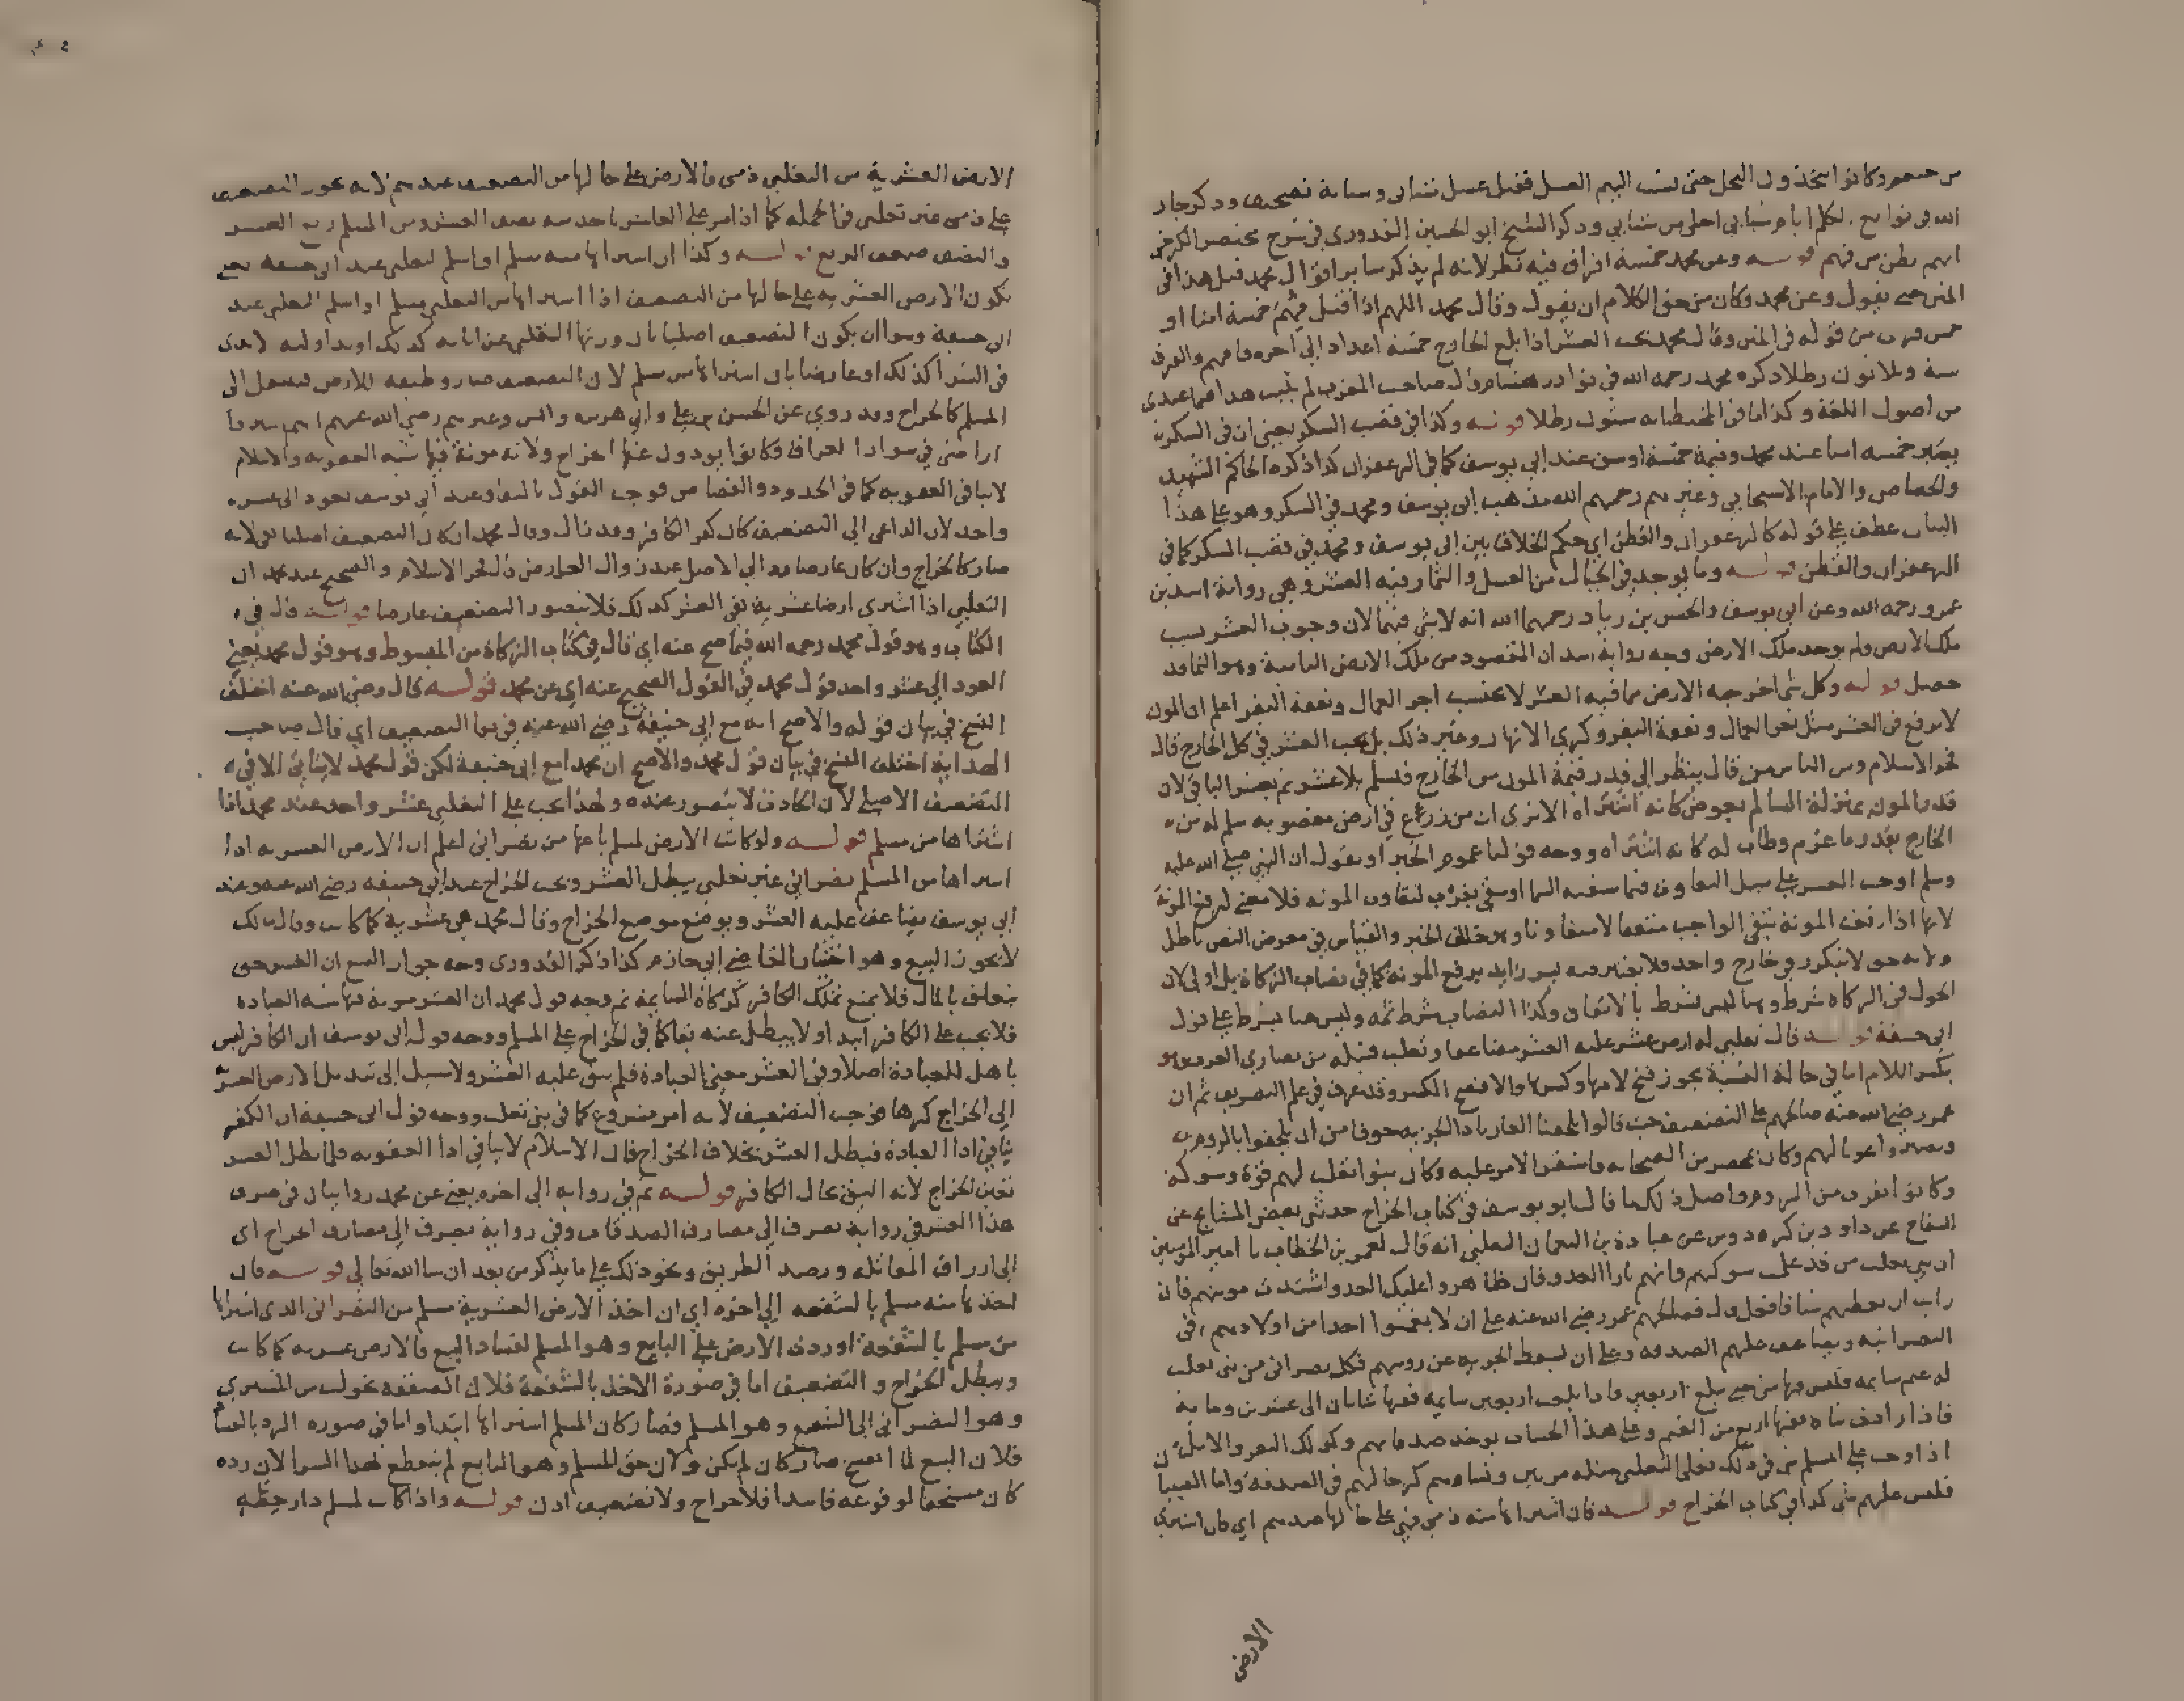 وكانوا يتخذون النحل حتى نسب اليهم العسل فقيل عسل وذكر جار
الله في نوابع الكلم وذكر الشيخ ابو الحسين القدوري في شرح مختصر الكرخي
قوله وعن محمد خمسة افراق فيه نظر لانه لم يذكر ساير اقوال محمد قبل هذا في
المتن حتى يقول وعن محمد وكان من حق الكلام ان يقول وقال محمد اللهم اذا قيل خمسة امنا او
من قوله في المتن وقال محمد يجب العشر اذا بلغ الخارج خمسة اعداد الى اخره فافهم والفرق
ستة وثلاثون رطلا ذكره محمد رحمه الله في نوادر هشام وقال صاحب المغرب لم هذا فيما عندي
من اصول اللغة وكذا ستون رطلا قوله وكذا في قصب السكر يعني ان في السكر
يعتبر خمسة امنا عند محمد وقيمة خمسة اوسق عند ابي يوسف كما في الزعفران كذا ذكره الحاكم الشهيد
والجصاص والامام الاسبيجابي وغيرهم رحمهم الله مذهب ابي يوسف ومحمد في السكر وهو على هذا
عطف على قوله كالزعفران والقطن اي حكم الخلاف بين ابي يوسف ومحمد في قصب السكر كما في
الزعفران والقطن قوله وما يوجد في الجبال من العسل والثمار ففيه العشر وهي رواية اسد بن
عمرو رحمه الله وعن ابي يوسف والحسن بن زياد رحمهما الله انه لا شي فيهما لان وجوب العشر بسبب
ملك الارض ولم يوجد ملك الارض وجه رواية اسد ان المقصود من ملك الارض النامية وهو النما وقد
حصل قوله وكل شي اخرجته الارض مما فيه العشر لا يحتسب اجر العمال ونفقة البقر اعلم ان المون
لا ترفع في العشر مثل اجر العمال ونفقة البقر وكري الانهار وغير ذلك بل يجب العشر في كل الخارج قال
فخر الاسلام ومن الناس من قال ينظر الى قدر قيمة المون من الخارج فيسلم بلا عشر ثم يعشر الباقي لان
قدر المون بمنزلة السالم بعوض كانه اشتراه الا ترى ان من زرع في ارض مغصوبة سلم له من
الخارج بقدر ما غرم وطاب له كانه اشتراه ووجه قولنا عموم الخبر او نقول ان النبي صلى الله عليه
وسلم اوجب العشر على سبيل التفاوت فيما سقته السما او سقي بغرب لتفاوت المونة فلا معنى لرفع المونة
لانها اذا ارتفعت المونة بقي الواجب متفقا لا متفاوتا وهو خلاف الخبر والقياس في معرض النص باطل
ولانه حق لا يتكرر في خارج واحد فلا يعتبر فيه برفع المونة كما في نصاب الزكاة بل اولى لان
الحول في الزكاة شرط وهنا ليس بشرط بالاتفاق وكذا النصاب شرط ثمة وليس هنا بشرط على قول
ابي حنيفة قوله قال تغلبي له ارض عشر عليه العشر مضاعفا وتغلب قبيلة من نصارى العرب وهو
بكسر اللام اما في حالة النسبة يجوز فتح لامها وكسرها والافصح الكسر وقد عرف في علم التصريف ثم ان
عمر رضي الله عنه صالحهم على التضعيف حيث قالوا يلحقنا العار بادا الجزية خوفا من ان يلحقوا بالروم
وكان بمحضر من الصحابة فاستقر الامر عليه وكان بنو تغلب لهم قوة وشوكة
وكانوا بقرب من الروم واصل ذلك ما قال ابو يوسف في كتاب الخراج حدثني بعض المشايخ عن
السفاح عن داود بن كردوس عن عبادة بن النعمان التغلبي انه قال لعمر بن الخطاب يا امير المومنين
ان بني تغلب من قد علمت شوكتهم وانهم بازا العدو فان ظاهروا عليك العدو اشتدت مونتهم فان
رايت ان تعطيهم شيا فافعل قال فصالحهم عمر رضي الله عنه على ان لا يغمسوا احدا من اولادهم في
النصرانية ويضاعف عليهم الصدقة وعلى ان يسقط الجزية عن روسهم فكل نصراني من بني تغلب
له غنم سايمة فليس فيها شي حتى تبلغ اربعين فاذا بلغت اربعين سايمة ففيها شاتان الى عشرين ومائة
فاذا زادت شاة ففيها اربع من الغنم وعلى هذا الحساب يوخذ صدقاتهم وكذلك البقر والابل
اذا وجب على المسلم شي في ذلك فعلى التغلبي مثله مرتين ونساوهم كرجالهم في الصدقة واما الصبيان
فليس عليهم شي كذا في كتاب الخراج قوله فان اشتراها منه ذمي فهي على حالها عندهم اي فان اشترى
الارض
الارض العشرية من التغلبي ذمي فالارض على حالها من التضعيف عندهم لانه يجوز التضعيف
على ذمي غير تغلبي في الجملة كما اذا مر على العاشر ياخذ منه نصف العشر ومن المسلم ربع العشر
والنصف ضعف الربع قوله وكذا ان اشتراها منه مسلم او اسلم التغلبي عند ابي حنيفة يعني
تكون الارض العشرية على حالها من التضعيف اذا اشتراها من التغلبي مسلم او اسلم التغلبي عند
ابي حنيفة وسوا ان يكون التضعيف اصليا بان ورثها التغلبي عن ابائه كذلك او تداولته الايدي
في الشرا كذلك او عارضا بان اشتراها من مسلم لان التضعيف صار وظيفة للارض فينتقل الى
المسلم كالخراج وقد روي عن الحسن بن علي وابي هريرة وانس وغيرهم رضي الله عنهم انهم اشتروا
اراضي في سواد العراق وكانوا يودون عنها الخراج ولانه مونة فيها شبه العقوبة والاسلام
لا ينافي العقوبة كما في الحدود والقصاص فوجب القول بالبقا وعند ابي يوسف يعود الى عشر
واحد لان الداعي الى التضعيف كان كفر الكافر وقد زال وقال محمد ان كان التضعيف اصليا بقي لانه
صار كالخراج وان كان عارضا رد الى الاصل عند زوال العارض قال فخر الاسلام والصحيح عند محمد ان
التغلبي اذا اشترى ارضا عشرية بقي العشر كذلك فلا يتصور التضعيف عارضا قوله قال في
الكتاب وهو قول محمد رحمه الله فيما صح عنه اي قال في كتاب الزكاة من المبسوط وهو قول محمد يعني
العود الى عشر واحد قول محمد في القول الصحيح عنه اي عن محمد قوله قال رضي الله عنه اختلف
النسخ في بيان قوله والاصح انه مع ابي حنيفة رضي الله عنه في بقا التضعيف اي قال صاحب
الهداية اختلف النسخ في بيان قول محمد والاصح ان محمدا مع ابي حنيفة لكن قول محمد لا يتاتى الا في
التضعيف الاصلي لان الحادث لا يتصور عنده ولهذا يجب على التغلبي عشر واحد عند محمد اذا
اشتراها من مسلم قوله ولو كانت الارض لمسلم باعها من نصراني اعلم ان الارض العشرية اذا
اشتراها من المسلم نصراني غير تغلبي يبطل العشر ويجب الخراج عند ابي حنيفة رضي الله عنه وعند
ابي يوسف يضاعف عليه العشر ويوضع موضع الخراج وقال محمد هي عشرية كما كانت وقال مالك
لا يجوز البيع وهو اختيار القاضي ابي حازم كذا ذكر القدوري وجه جواز البيع ان العشر حق
يتعلق بالمال فلا يمنع تملك الكافر كزكاة السايمة ثم وجه قول محمد ان العشر مونة فيها شبه العبادة
فلا يجب على الكافر ابتدا ولا يبطل عنه بقا كما في الخراج على المسلم ووجه قول ابي يوسف ان الكافر ليس
باهل للعبادة اصلا وفي العشر معنى العبادة فلم يبق عليه العشر ولا سبيل الى تبديل الارض العشرية
الى الخراج كرها فوجب التضعيف لانه امر مشروع كما في بني تغلب ووجه قول ابي حنيفة ان الكفر
ينافي ادا العبادة فيبطل العشر بخلاف الخراج فان الاسلام لا ينافي ادا العقوبة فلما بطل العشر
تعين الخراج لانه اليق بحال الكافر قوله ثم في رواية الى اخره يعني عن محمد روايتان في صرف
هذا العشر في رواية تصرف الى مصارف الصدقات وفي رواية تصرف الى مصارف الخراج اي
الى ارزاق المقاتلة ورصد الطريق ونحو ذلك على ما يذكر من بعد ان شا الله تعالى قوله فان
اخذها منه مسلم بالشفعة الى اخره اي ان اخذ الارض العشرية مسلم من النصراني الذي اشتراها
من مسلم بالشفعة او ردت الارض على البايع وهو المسلم لفساد البيع فالارض عشرية كما كانت
وبطل الخراج والتضعيف اما في صورة الاخذ بالشفعة فلان الصفقة تحولت من المشتري
وهو النصراني الى الشفيع وهو المسلم فصار كان المسلم اشتراها ابتدا واما في صورة الرد بالفساد
فلان البيع لما انفسخ صار كان لم يكن ولان حق المسلم وهو البايع لم ينقطع بهذا الشرا لان رده
كان مستحقا لوقوعه فاسدا فلا خراج ولا تضعيف اذن قوله واذا كانت لمسلم دار خطة